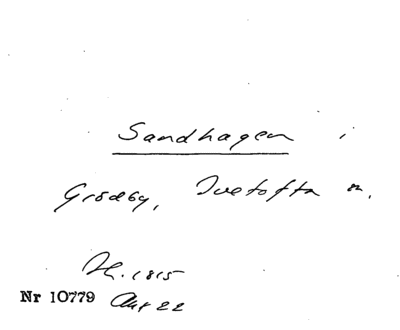 Sandhagen i
Grödby, Ivetofta sn.
H. 1815
Nr 10779 Akt 22